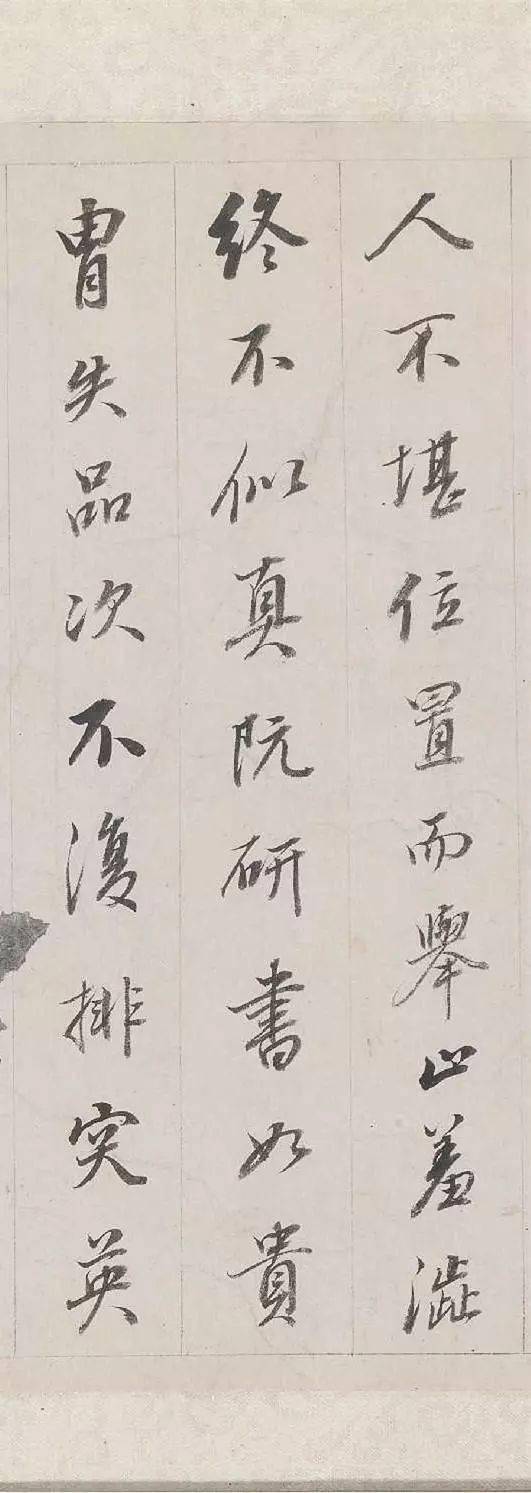 人不堪位置而舉止羞澁
終不似真阮研書如貴
胄失品次不復排突英